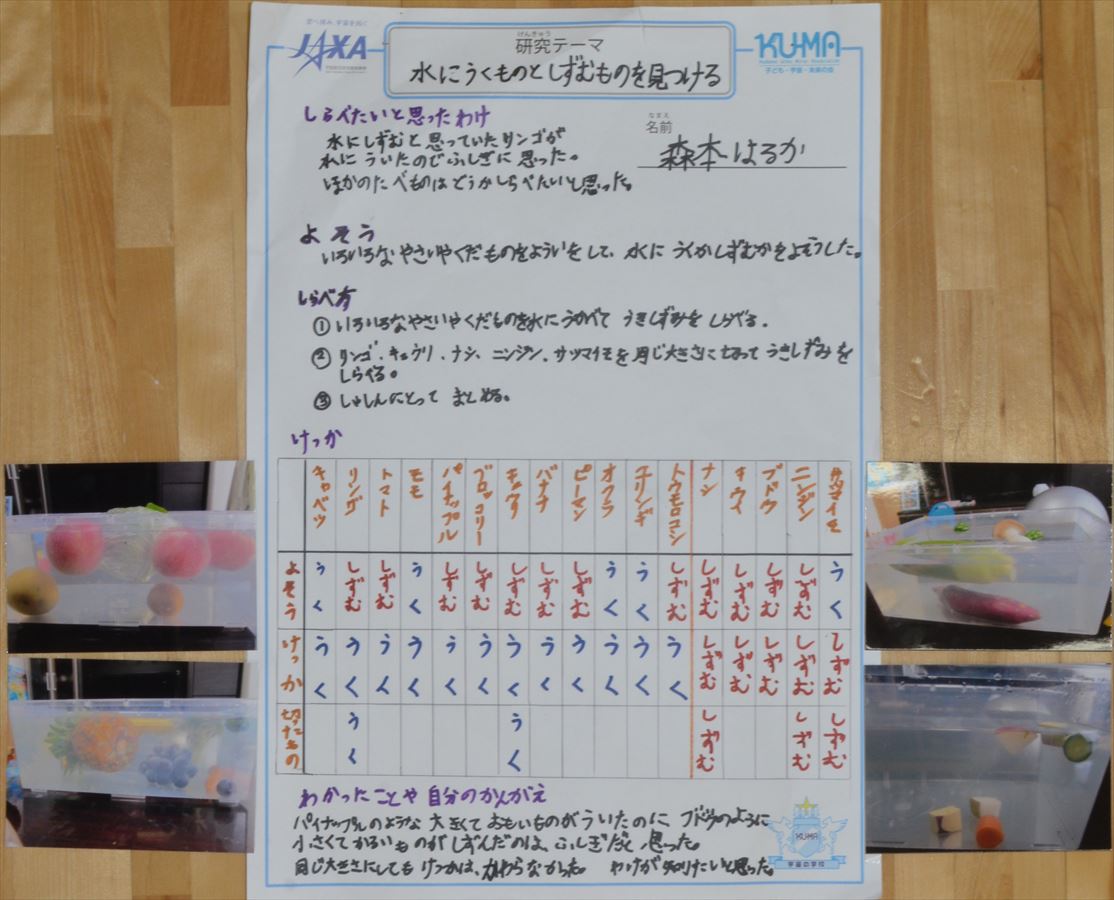 JAXA
けんきゅう
研究テーマ
水にうくものとしずむものを見つける
KU-MA
子ども・宇宙・未来の会
なまえ
名前
森本はるか
しらべたいと思ったわけ
水にしずむと思っていたリンゴが
水にういたのでふしぎに思った。
ほかのたべものはどうかしらべたいと思った。
よそう
いろいろなやさいやくだものをよういをして、水にうくかしずむかをよそうした。
しらべ方
① いろいろなやさいやくだものを水にうかべてうきしずみをしらべる。
② リンゴ、キュウリ、ナシ、ニンジン、サツマイモを同じ大きさに切ってうきしずみを
しらべる。
③ しゃしんにとってまとめる。
けっか
キャベツ リンゴ トマト モモ パイナップル ブロッコリー キュウリ バナナ ピーマン オクラ エリンギ トウモロコシ ナシ キウイ ブドウ ニンジン サツマイモ
よそう うく しずむ しずむ うく しずむ しずむ しずむ しずむ しずむ うく うく しずむ しずむ しずむ しずむ しずむ うく
けっか うく うく うく うく うく うく うく うく うく うく うく うく しずむ しずむ しずむ しずむ しずむ
切ったもの うく うく しずむ しずむ しずむ
わかったことや自分のかんがえ
パイナップルのような大きくておもいものがういたのにブドウのように
小さくてかるいものがしずんだのは、ふしぎだと思った。
同じ大きさにしてもけっかは、かわらなかった。 わけが知りたいと思った。
KU-MA
宇宙の学校